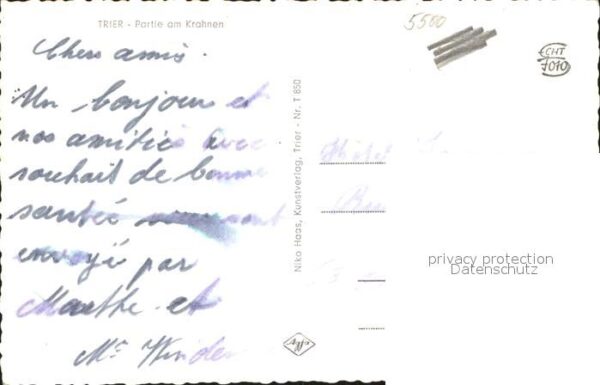 TRIER - Partie am Krahnen
5500
CHT
7010
Chers amis.
Un bonjour et
nos amitiés avec
souhait de bonne
santé
envoyé par
Marthe et
Mr
Niko Haas, Kunstverlag, Trier - Nr. T 850
privacy protection
Datenschutz